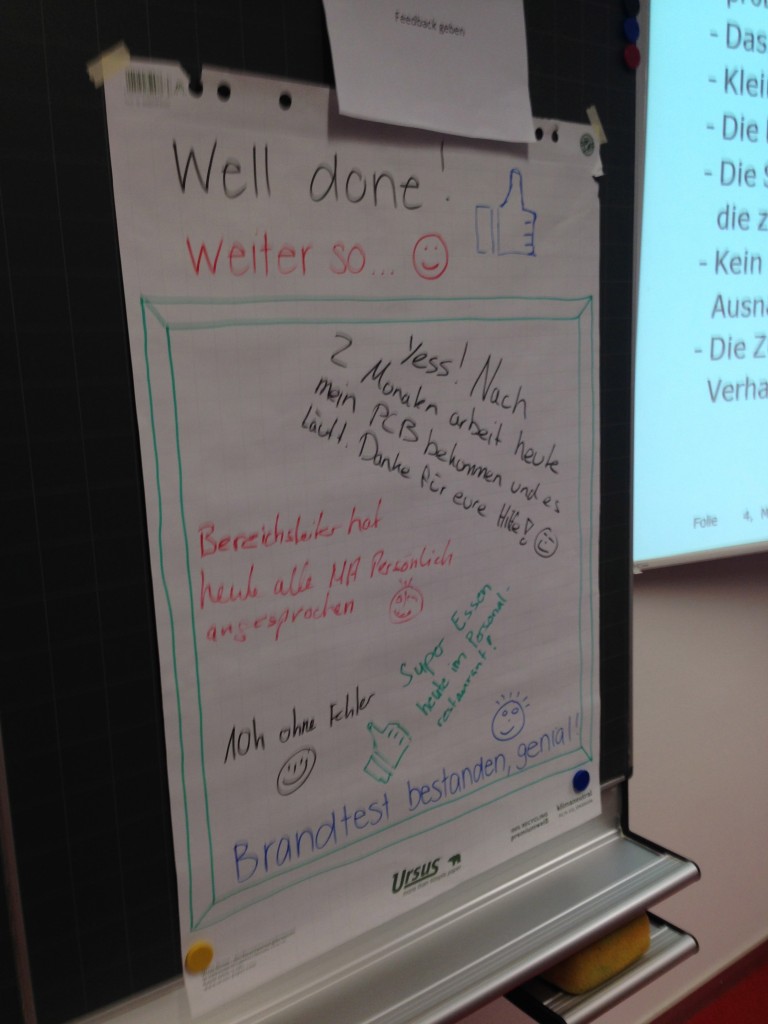 Feedback geben
Well done!
Weiter so...
Yess! Nach
2 Monaten arbeit heute
mein PCB bekommen und es
läuft. Danke für eure Hilfe!
Bereichsleiter hat
heute alle MA Persönlich
angesprochen
Super Essen
heute im Personal-
restaurant!
10h ohne Fehler
Brandtest bestanden, genial!
Ursus
- Das
- Klei
- Die
- Die S
die z
- Kein
Ausna
- Die Z
Verha
Folie 4, M